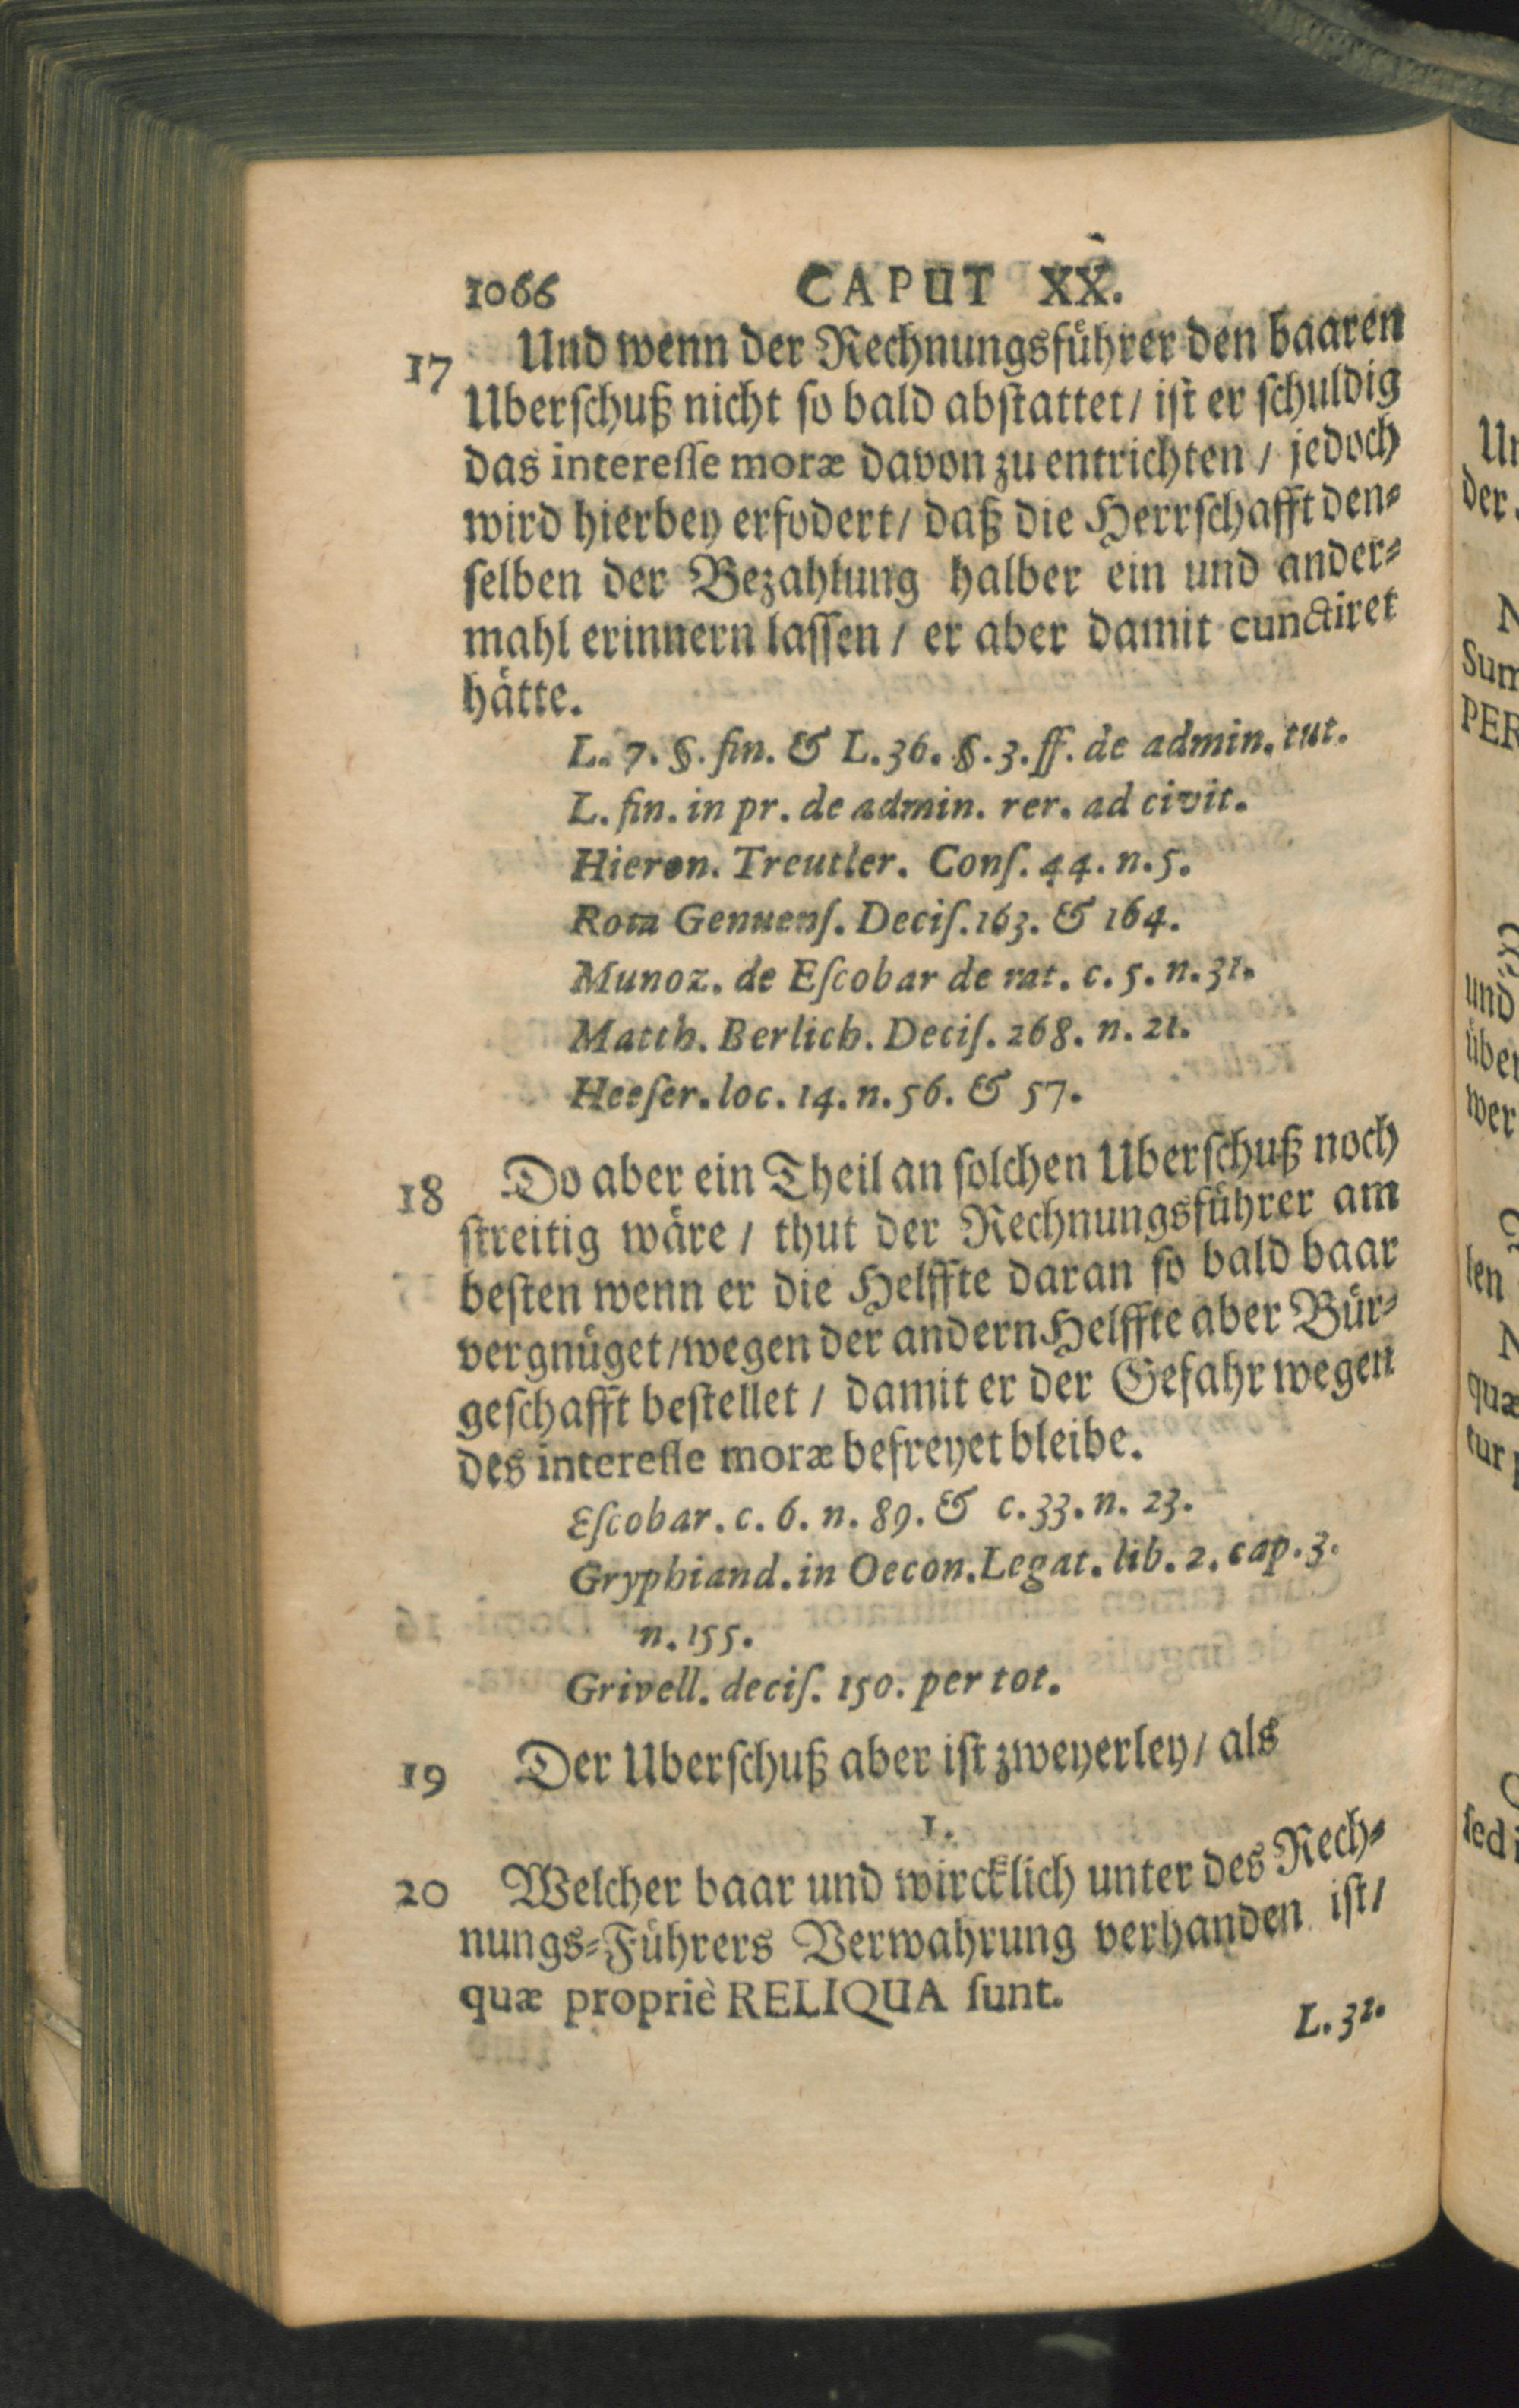 1066 CAPUT XX.
17 Und wenn der Rechnungsfuͤhrer den baaren
Uberschuß nicht so bald abstattet / ist er schuldig
das interesse moræ davon zu entrichten / jedoch
wird hierbey erfodert / daß die Herrschafft den-
selben der Bezahlung halber ein und ander-
mahl erinnern lassen / er aber damit cunctiret
haͤtte.
L. 7. §. fin. & L. 36. §. 3. ff. de admin. tut.
L. fin. in pr. de admin. rer. ad civit.
Hieron. Treutler. Conſ. 44. n. 5.
Rota Genuenſ. Deciſ. 163. & 164.
Munoz. de Eſcobar de rat. c. 5. n. 31.
Matth. Berlich. Deciſ. 268. n. 21.
Heeſer. loc. 14. n. 56. & 57.
18 Do aber ein Theil an solchen Uberschuß noch
streitig waͤre / thut der Rechnungsfuͤhrer am
besten wenn er die Helffte daran so bald baar
vergnuͤget / wegen der andern Helffte aber Buͤr-
geschafft bestellet / damit er der Gefahr wegen
des interesse moræ befreyet bleibe.
Eſcobar. c. 6. n. 89. & c. 33. n. 23.
Gryphiand. in Oecon. Legat. lib. 2. cap. 3.
n. 155.
Grivell. deciſ. 150. per tot.
19 Der Uberschuß aber ist zweyerley / als
1.
20 Welcher baar und wircklich unter des Rech-
nungs-Fuͤhrers Verwahrung verhanden ist /
quæ propriè RELIQUA sunt.
L. 32.